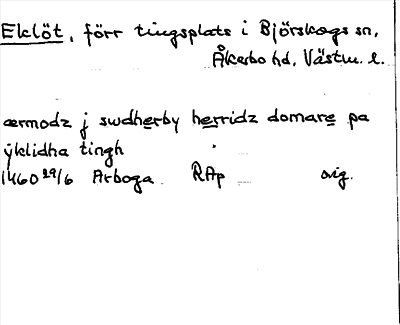 Eklöt, förr tingsplats i Björskogs sn,
Åkerbo hd, Västm. l.
ærmodz j swdherby herridz domare pa
ÿklidha tingh
1460 29/6 Arboga RAp orig.